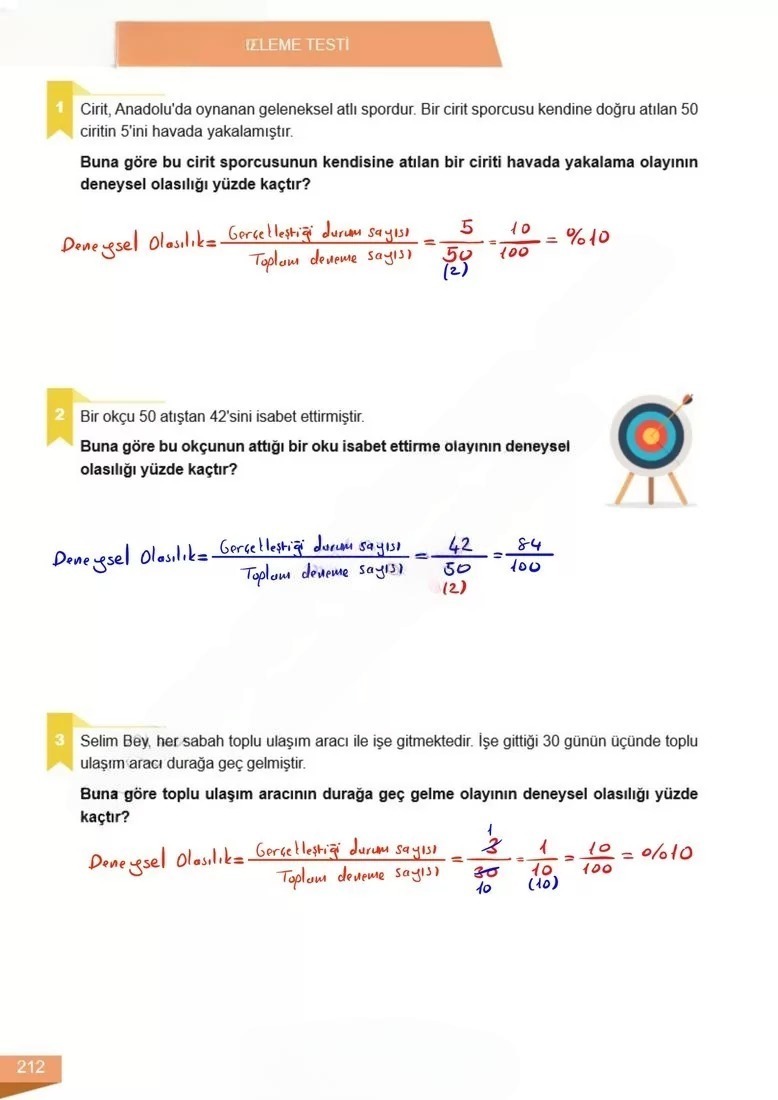 İZLEME TESTİ
1 Cirit, Anadolu'da oynanan geleneksel atlı spordur. Bir cirit sporcusu kendine doğru atılan 50
ciritin 5'ini havada yakalamıştır.
Buna göre bu cirit sporcusunun kendisine atılan bir ciriti havada yakalama olayının
deneysel olasılığı yüzde kaçtır?
Deneysel Olasılık = Gerçekleştiği durum sayısı / Toplam deneme sayısı = 5 / 50 = 10 / 100 = %10
(2)
2 Bir okçu 50 atıştan 42'sini isabet ettirmiştir.
Buna göre bu okçunun attığı bir oku isabet ettirme olayının deneysel
olasılığı yüzde kaçtır?
Deneysel Olasılık = Gerçekleştiği durum sayısı / Toplam deneme sayısı = 42 / 50 = 84 / 100
(2)
3 Selim Bey, her sabah toplu ulaşım aracı ile işe gitmektedir. İşe gittiği 30 günün üçünde toplu
ulaşım aracı durağa geç gelmiştir.
Buna göre toplu ulaşım aracının durağa geç gelme olayının deneysel olasılığı yüzde
kaçtır?
1
Deneysel Olasılık = Gerçekleştiği durum sayısı / Toplam deneme sayısı = 3 / 30 = 1 / 10 = 10 / 100 = %10
10 (10)
212